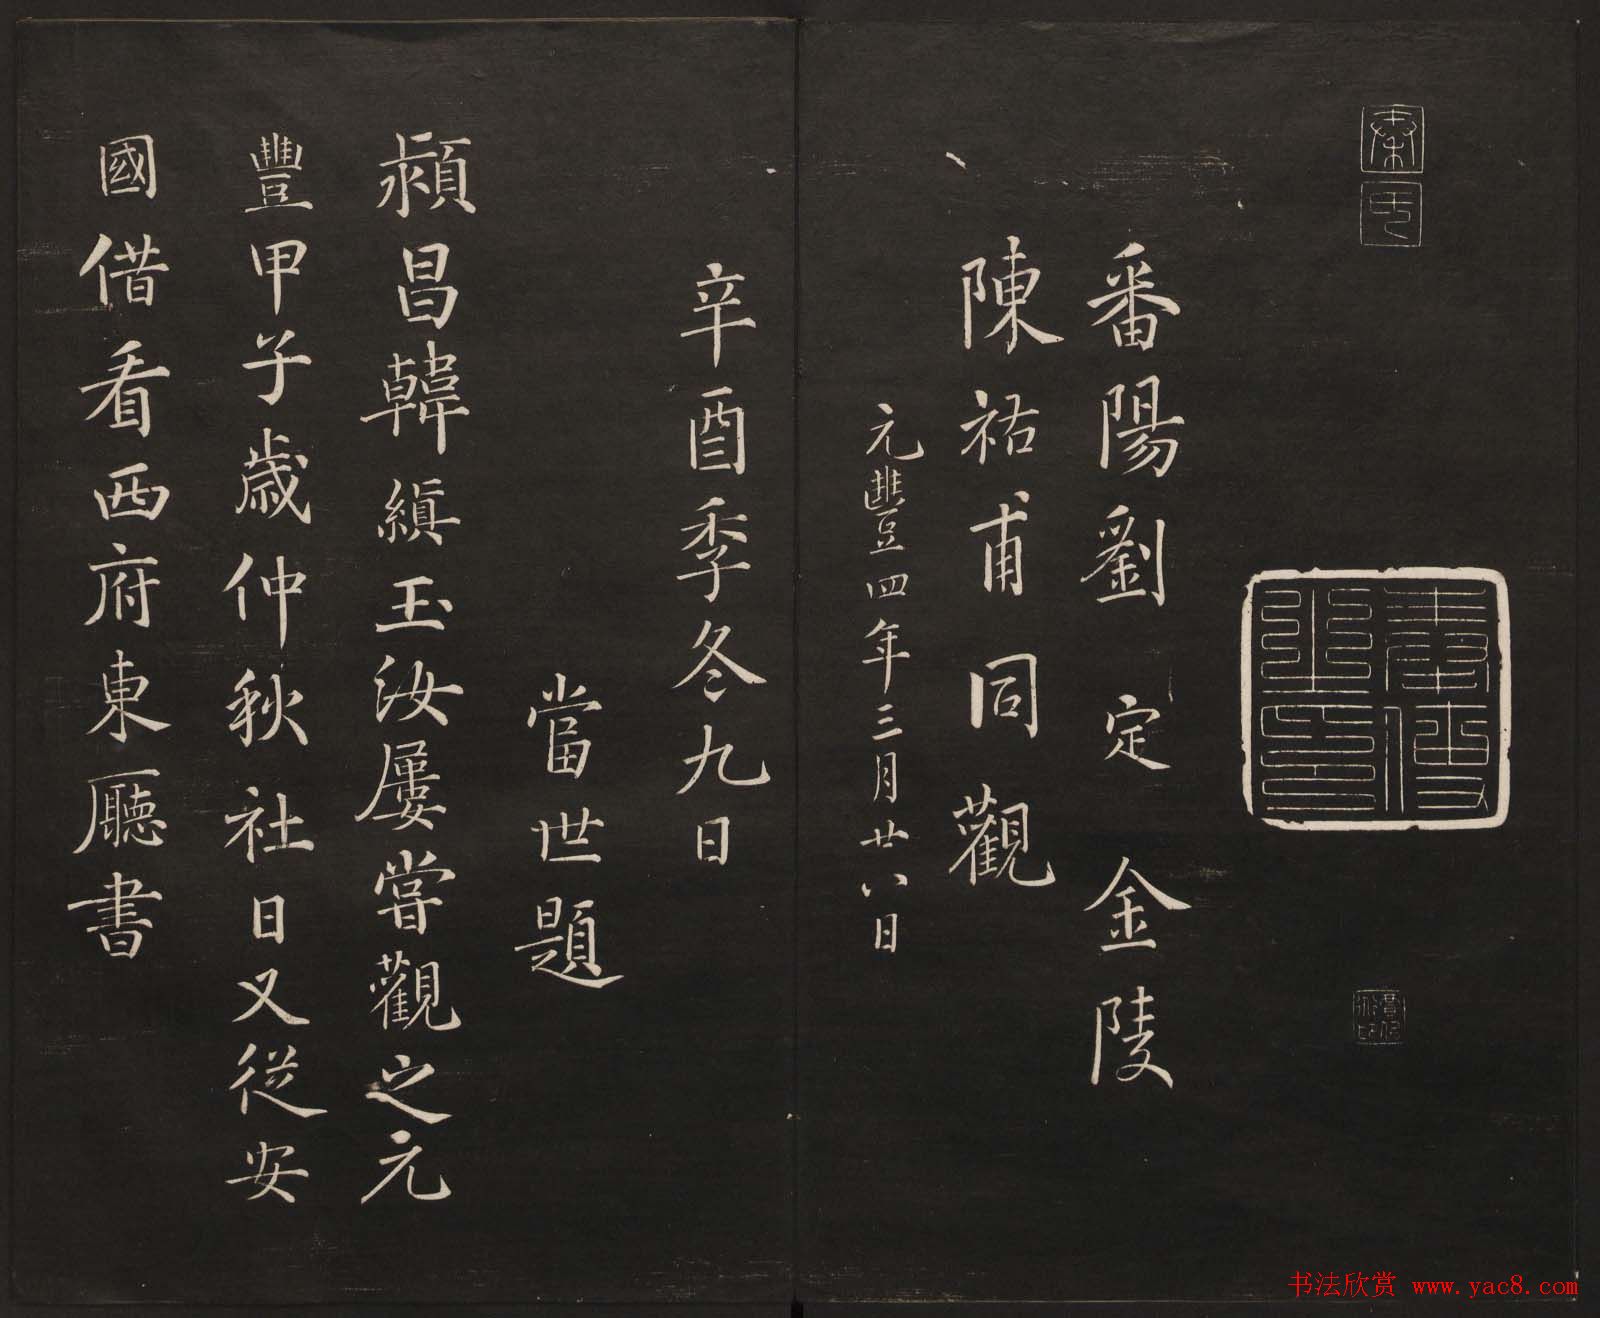 番陽劉定金陵
陳祐甫同觀
元豐四年三月廿八日
辛酉季冬九日
當世題
潁昌韓縝玉汝屢嘗觀之元
豐甲子歲仲秋社日又從安
國借看西府東廳書
书法欣赏 www.yac8.com